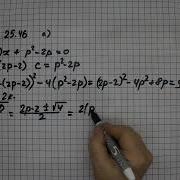 25.46 a)
)x + p² - 2p = 0
(2p-2) c = p² - 2p
(2p-2))² - 4(p² - 2p) = (2p-2)² - 4p² + 8p =
= (2p-2 ± √4)/2 = 2(p